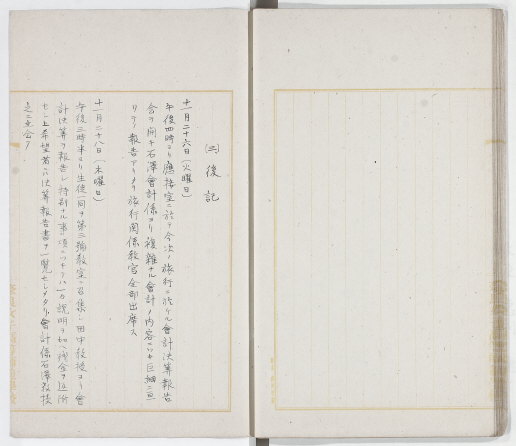 (三) 後記
十一月二十六日(火曜日)
午後四時ヨリ應接室ニ於テ今次ノ旅行ニ於ケル會計決算報告
會ヲ開キ石澤會計係ヨリ複雜ナル會計ノ内容ニツキ巨細ニ亘
リテノ報告アリタリ旅行関係教官全部出席ス
十一月二十八日(木曜日)
午後三時半ヨリ生徒一同ヲ第三号教室ニ召集シ田中教授ヨリ會
計決算ヲ報告シ特別ナル事項ニツキテハ一々説明ヲ加ヘ残金ヲ返附
セシ上希望者ニハ決算報告書ヲ一覧セシメタリ會計係石澤教授
之ニ立会フ